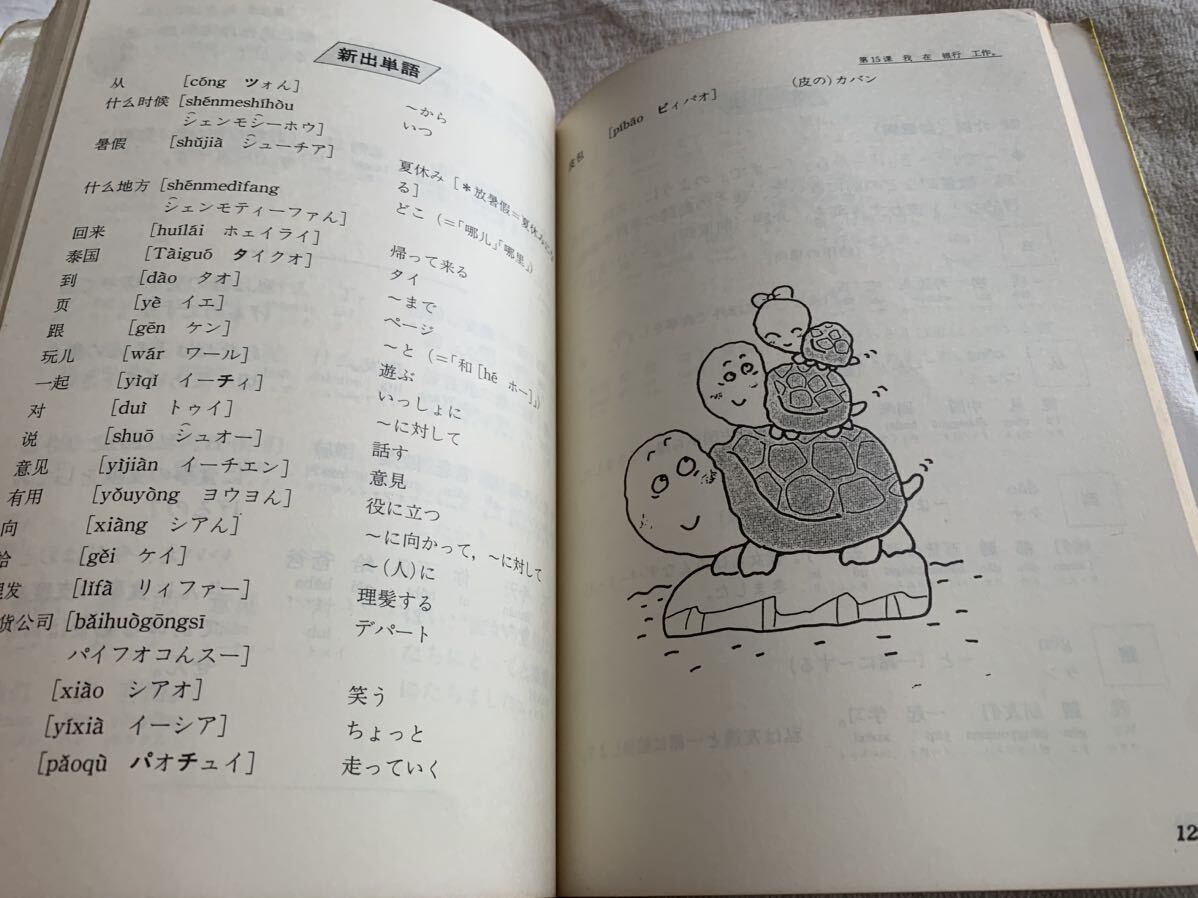 新出単語
从 [cóng ツォん] ～から
什么时候 [shénmeshíhòu いつ
シェンモシーホウ]
暑假 [shǔjià シューチア] 夏休み [＊放暑假＝夏休みになる]
什么地方 [shénmedìfang どこ (=「哪儿」「哪里」)
シェンモティーファん]
回来 [huílái ホェイライ] 帰って来る
泰国 [Tàiguó タイクオ] タイ
到 [dào タオ] ～まで
页 [yè イエ] ページ
跟 [gēn ケン] ～と (=「和[hé ホー]」)
玩儿 [wár ワール] 遊ぶ
一起 [yìqǐ イーチィ] いっしょに
对 [duì トゥイ] ～に対して
说 [shuō シュオー] 話す
意见 [yìjiàn イーチエン] 意見
有用 [yǒuyòng ヨウヨん] 役に立つ
向 [xiàng シアん] ～に向かって，～に対して
[gěi ケイ] ～(人)に
发 [lǐfà リィファー] 理髪する
货公司 [bǎihuògōngsī デパート
パイフオコんスー]
[xiào シアオ] 笑う
[yíxià イーシア] ちょっと
[pǎoqù パオチュイ] 走っていく
第15课 我 在 银行 工作。
皮包 [píbāo ピィパオ] (皮の)カバン
12